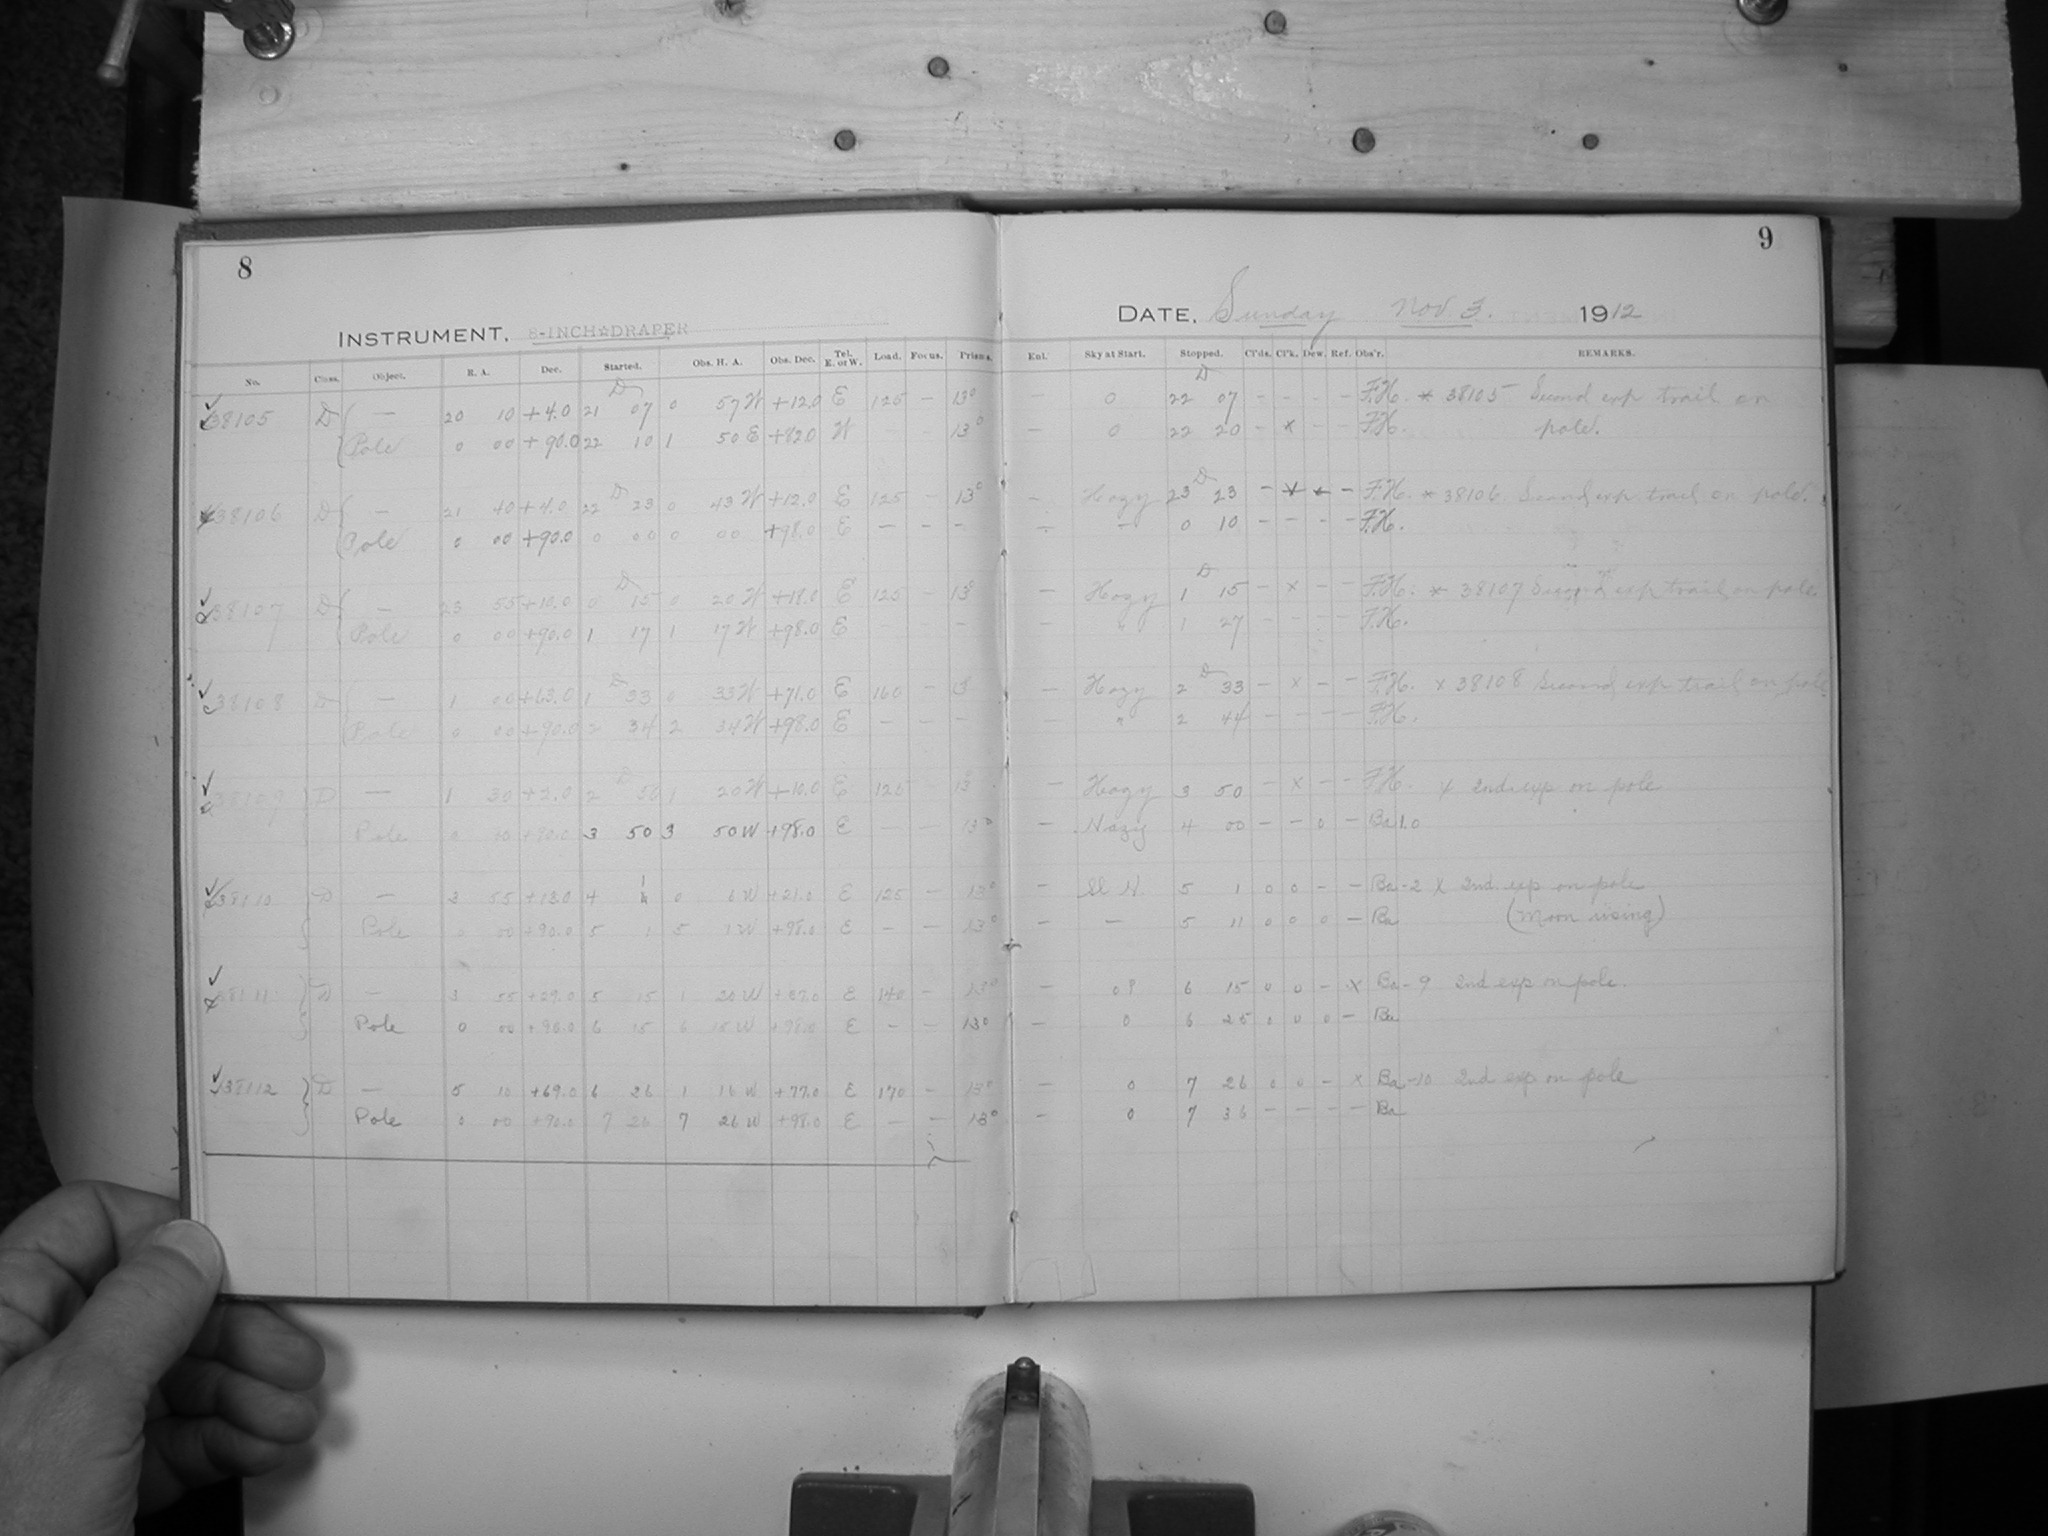 8
INSTRUMENT, 8-INCH☆DRAPER
No. Class. Object. R. A. Dec. Started. Obs. H. A. Obs. Dec. Tel. E. or W. Load. Focus. Prisms.
38105 D — 20 10 +4.0 21 D 07 0 57 W +12.0 E 125 — 13°
Pole 0 00 +90.0 22 10 1 50 E +82.0 W — — 13°
38106 D — 21 40 +4.0 22 D 23 0 43 W +12.0 E 125 — 13°
Pole 0 00 +90.0 0 00 0 00 +98.0 E — — —
38107 D — 23 55 +10.0 0 D 15 0 20 W +18.0 E 125 — 13°
Pole 0 00 +90.0 1 17 1 17 W +98.0 E — — —
38108 D — 1 00 +63.0 1 D 33 0 33 W +71.0 E 160 — 13
Pole 0 00 +90.0 2 34 2 34 W +98.0 E — — —
38109 D — 1 30 +2.0 2 D 50 1 20 W +10.0 E 125 — 13
Pole 0 00 +90.0 3 50 3 50 W +98.0 E — — 13°
38110 D — 3 55 +13.0 4 1 0 6 W +21.0 E 125 — 13°
Pole 0 00 +90.0 5 1 5 1 W +98.0 E — — 13°
38111 D — 3 55 +29.0 5 15 1 20 W +37.0 E 140 — 13°
Pole 0 00 +90.0 6 15 6 15 W +98.0 E — — 13°
38112 D — 5 10 +69.0 6 26 1 16 W +77.0 E 170 — 13°
Pole 0 00 +90.0 7 26 7 26 W +98.0 E — — 13°
9
DATE, Sunday Nov 3. 1912
Enl. Sky at Start. Stopped. Cl'ds. Cl'k. Dew. Ref. Obs'r. REMARKS.
— 0 22 D 07 - - - - F.H. * 38105 Second exp trail on
— 0 22 20 - x - - F.H. pole.
— Hazy 23 D 23 - x x - F.H. * 38106 Second exp trail on pole.
— — 0 10 - - - - F.H.
— Hazy 1 D 15 - x - - F.H. * 38107 Second exp trail on pole.
— " 1 27 - - - - F.H.
— Hazy 2 D 33 - x - - F.H. x 38108 Second exp trail on pole
— " 2 44 - - - - F.H.
— Hazy 3 50 - x - - F.H. x 2nd exp on pole
— Hazy 4 00 - - 0 - Ba 1.0
— Sl H. 5 1 0 0 - - Ba -2 x 2nd exp on pole
— — 5 11 0 0 0 - Ba (Moon rising)
— 0? 6 15 0 0 - x Ba -9 2nd exp on pole.
— 0 6 25 0 0 0 - Ba
— 0 7 26 0 0 - x Ba -10 2nd exp on pole
— 0 7 36 - - - - Ba